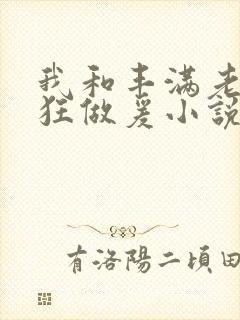 我和丰满老
狂做爰小說
有洛陽二頃田